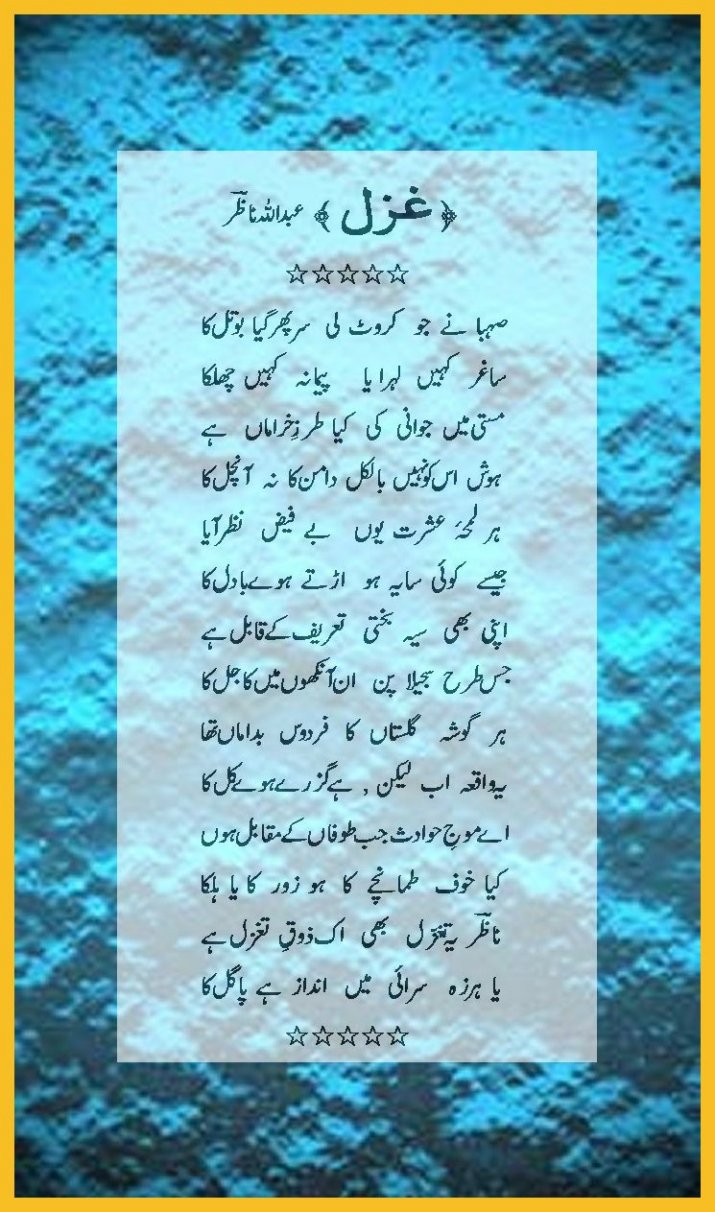 ﴿ غزل ﴾ عبداللہ ناظرؔ
☆☆☆☆☆
صہبا نے جو کروٹ لی سر پھر گیا بوتل کا
ساغر کہیں لہرایا پیمانہ کہیں چھلکا
مستی میں جوانی کی کیا طرزِ خراماں ہے
ہوش اس کو نہیں بالکل دامن کا نہ آنچل کا
ہر لمحۂ عشرت یوں بے فیض نظر آیا
جیسے کوئی سایہ ہو اڑتے ہوے بادل کا
اپنی بھی سیہ بختی تعریف کے قابل ہے
جس طرح سجیلا پن ان آنکھوں میں کاجل کا
ہر گوشہ گلستاں کا فردوس بداماں تھا
یہ واقعہ اب لیکن , ہے گزرے ہوے کل کا
اے موجِ حوادث جب طوفاں کے مقابل ہوں
کیا خوف طمانچے کا ہو زور کا یا ہلکا
ناظرؔ یہ تغزّل بھی اک ذوقِ تغزل ہے
یا ہرزہ سرائی میں انداز ہے پاگل کا
☆☆☆☆☆